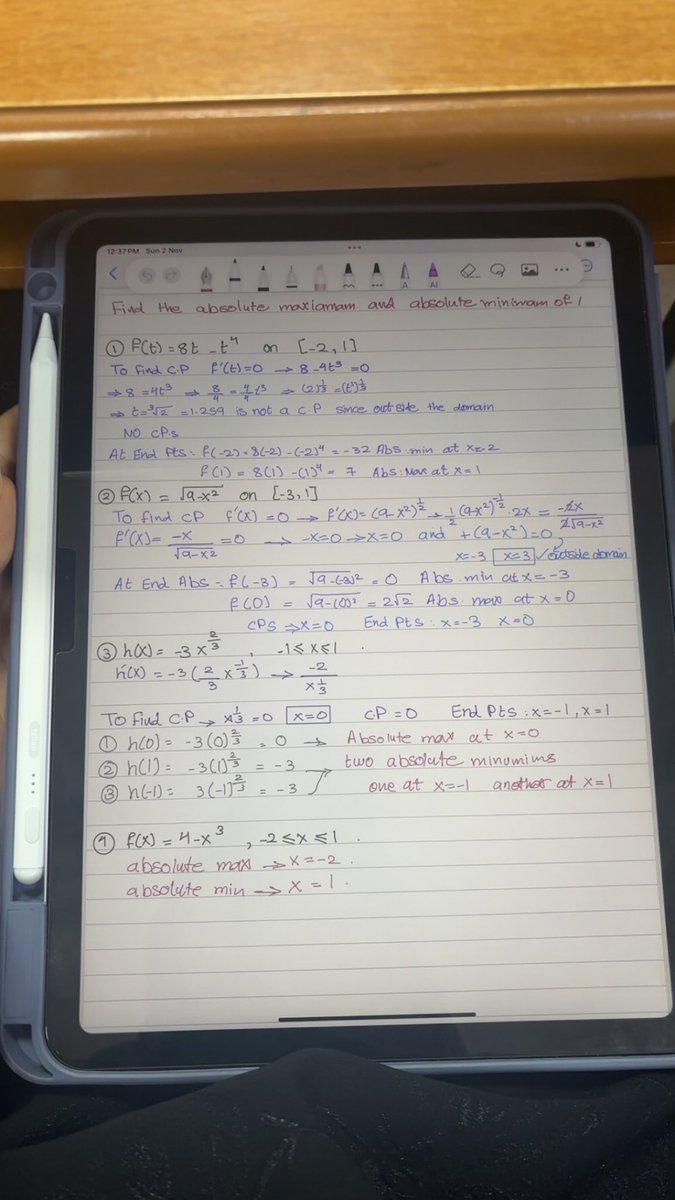 12:37 PM Sun 2 Nov
A AI
Find the absolute maxiamam and absolute minimam of
① f(t) = 8t - t⁴ on [-2, 1]
To find C.P f'(t)=0 → 8-4t³ =0
⇒ 8 = 4t³ ⇒ 8/4 = 4/4 t³ ⇒ (2)^1/3 = (t³)^1/3
⇒ t=³√2 = 1.259 is not a C.P since outside the domain
NO CPs
At End Pts: f(-2) = 8(-2) - (-2)⁴ = -32 Abs.min at x=-2
f(1) = 8(1) - (1)⁴ = 7 Abs.Max at x=1
② f(x) = √9-x² on [-3,1]
To find CP f'(x) =0 → f'(x)= (9-x²)^1/2 → 1/2 (9-x²)^-1/2 . 2x = -2x/2√9-x²
f'(x)= -x/√9-x² =0 → -x=0 →x=0 and +(9-x²)=0
x=-3 x=3 outside domain
At End Abs = f(-3) = √9-(-3)² = 0 Abs.min at x=-3
f(0) = √9-(0)² = 2√2 Abs. max at x=0
CPs ⇒ x=0 End Pts: x=-3 x=0
③ h(x)= -3 x^2/3 , -1≤ x≤1
h'(x) = -3 (2/3 x^-1/3) → -2/x^1/3
To find C.P → x^1/3 =0 x=0 C.P =0 End Pts: x=-1, x=1
① h(0)= -3(0)^2/3 = 0 → Absolute max at x=0
② h(1)= -3(1)^2/3 = -3 two absolute minumims
③ h(-1)= 3(-1)^2/3 = -3 one at x=-1 another at x=1
④ f(x) = 4-x³ , -2≤x≤1
absolute max → x=-2.
absolute min → x = 1.